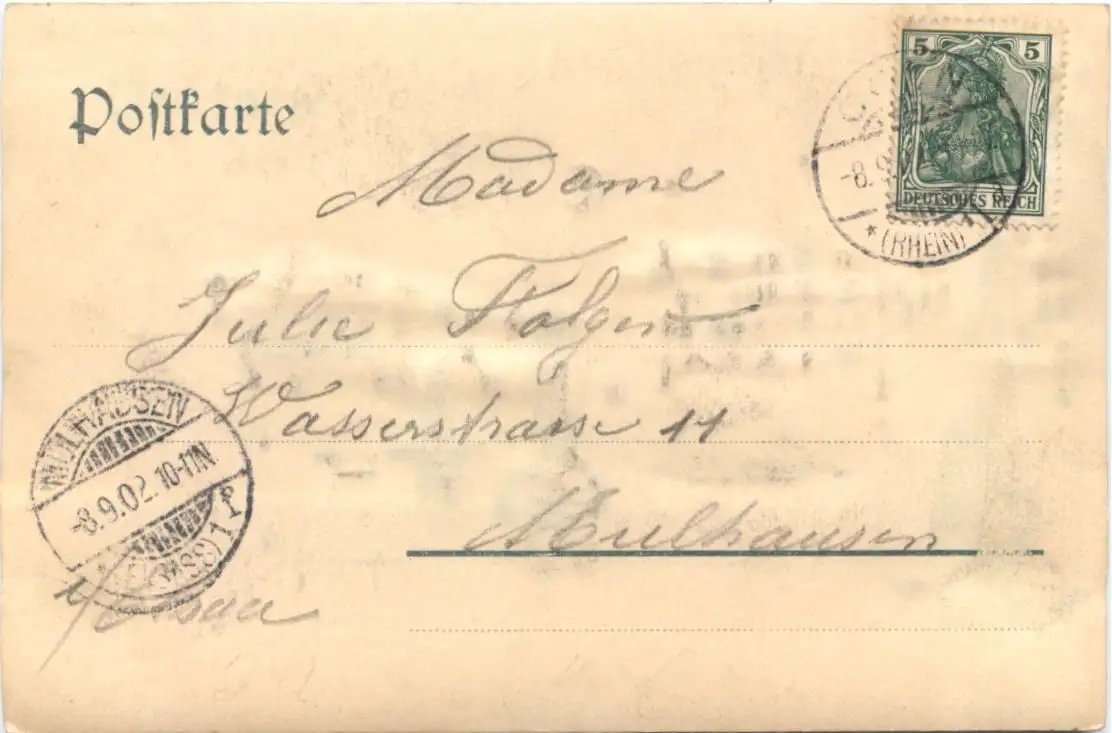 Postkarte
5 5
DEUTSCHES REICH
-8.9.
* (RHEIN)
Madame
Julie
Wasserstrasse 11
Mülhausen
MÜLHAUSEN
-8.9.02. 10-11N
(ELSASS) 1